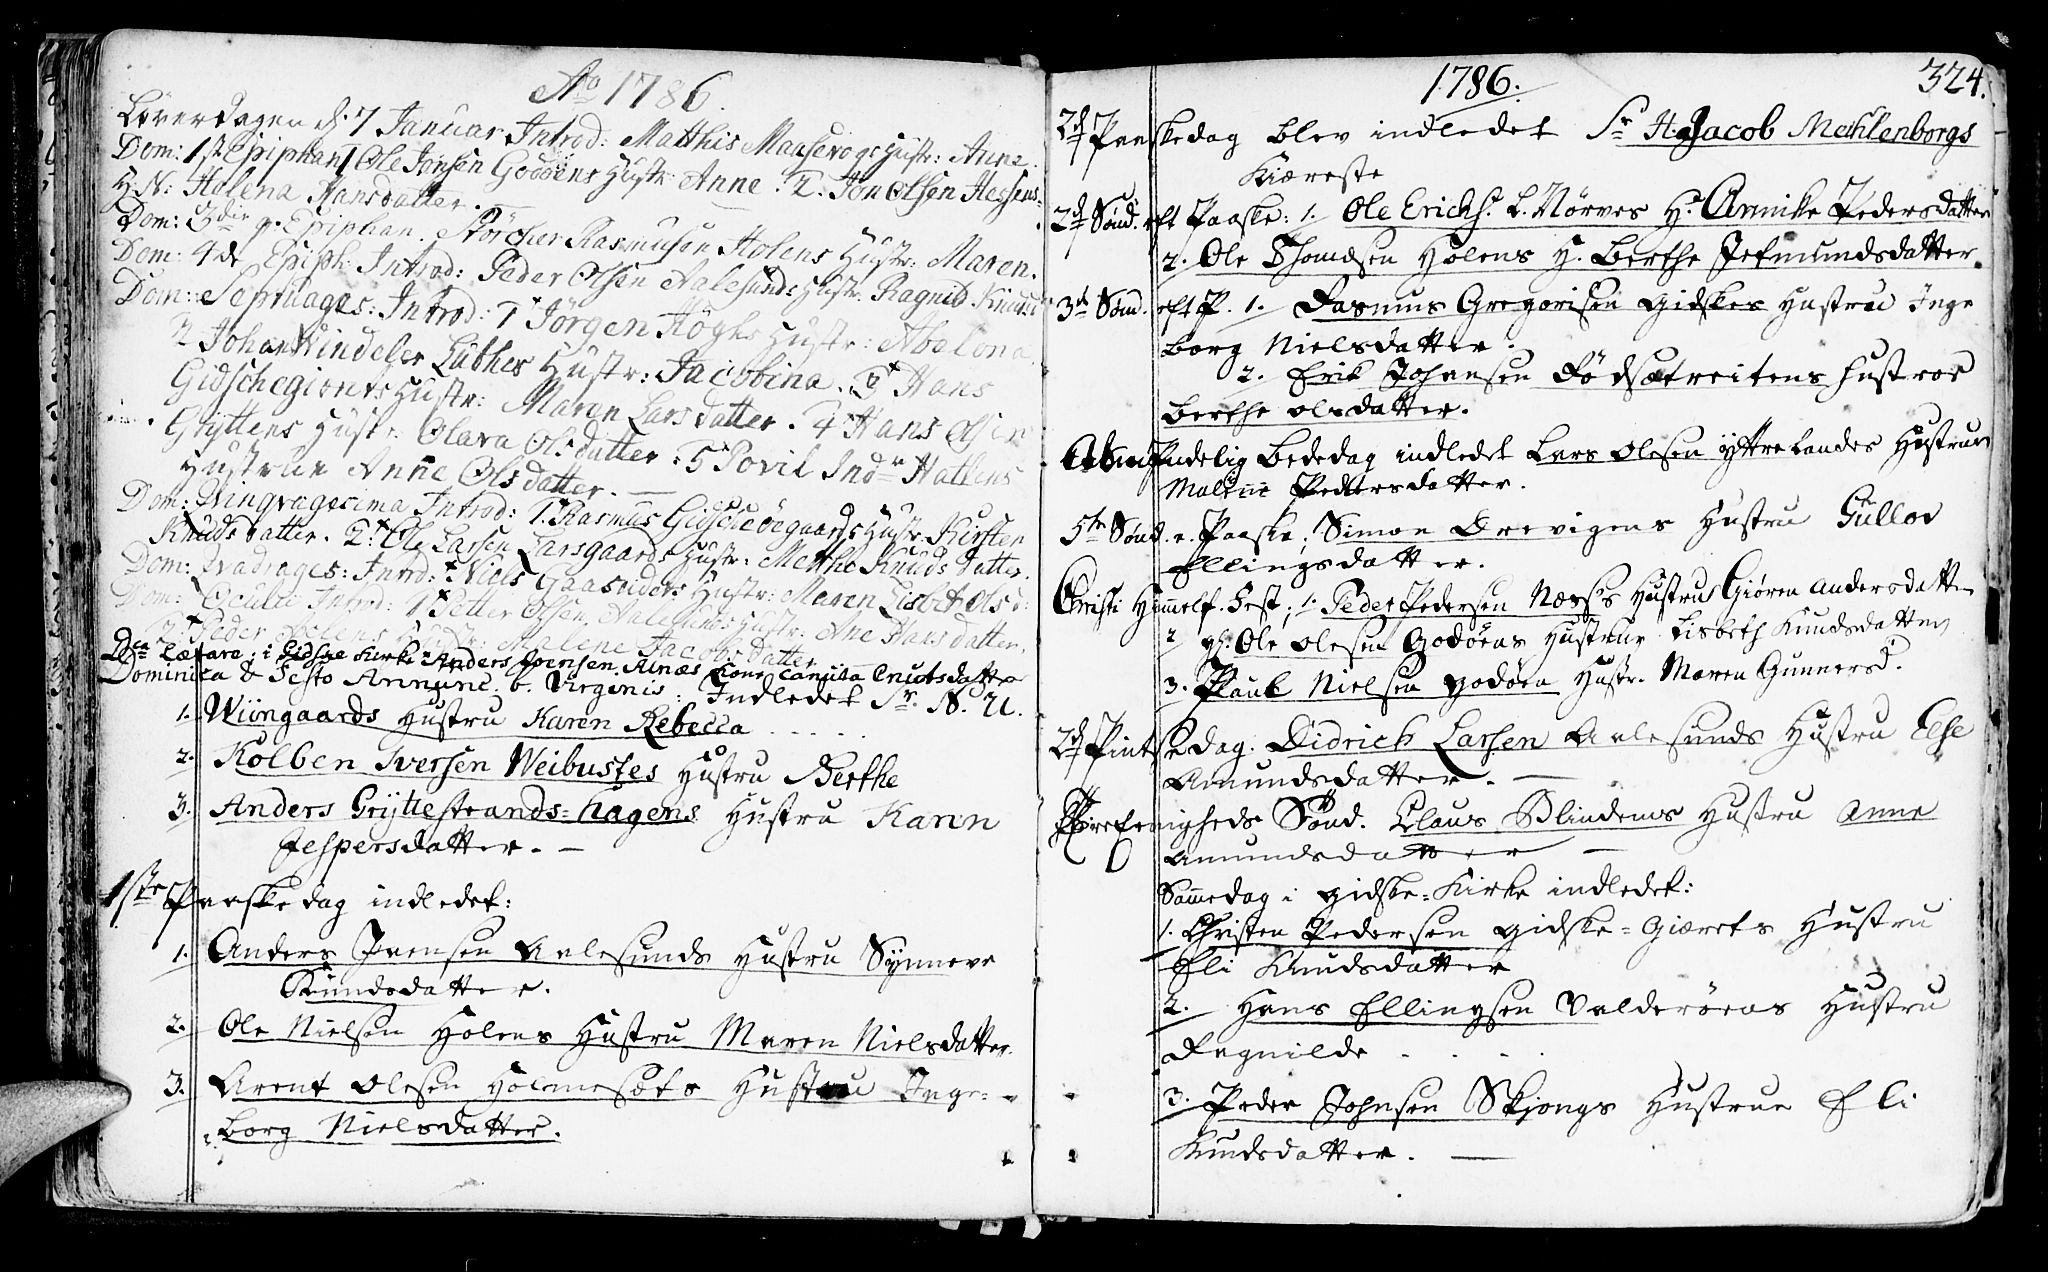 Ao 1786.
Löverdagen d. 7 Januar Introd: Matthis Mansevogs Hustr: Anne.
Dom: 1st Epiphan 1 Ole Jonsen Godöens Hustr: Anne. 2. Jon Olsen Hessens
H. N: Halena Hansdatter. —
Dom: 3die p. Epiphan. Störcher Rasmusen Holens Hustr: Maren.
Dom: 4de Epiph: Introd: Peder Olsen Aalesunds Hustr. Ragnild Knudsd
Dom: Septuages: Introd: 1 Jörgen Höghs Hustr: Abelona.
2 Johan Windeler Lüthes Hustr: Jacobina. 3 Hans
Gidschegiorts Hustr: Maren Larsdatter. 4 Hans Olsen
Gryttens Hustr: Olava Olsdatter. 5 Povil Hatlens
Hustrue Anne Olsdatter. —
Dom: Qvinqvagesima Introd: 1. Rasmus Gidscheöegaards Hustr: Kirsten
Knudsdatter. 2. Ole Larsen Larsgaards Hustr: Merthe Knudsdatter.
Dom: Qvadrages: Introd: Niels Gaasviders Hustr: Maren Lisbet Olsd:
Dom: Oculi Introd: 1 Petter Olsen, Aalesunds Hustr: Ane Hansdatter.
2 Peder Holens Hustr: Malene Jacobsdatter.
Dca Lætare: i Gidske Kirke Anders Iversen Alnæs Kone Canuta Cnutsdatter
Dominica & Festo Annunc: b. Virginis: Indledet Sr. N. U.
1. Wiingaards Hustru Karen Rebecca . . . . .
2. Kolben Iversen Weibustes Hustru Berthe
3. Anders Gryttestrands=hagens Hustru Karen
Jespersdatter. —
1ste Paaskedag indledet:
1. Anders Ivensen Aalesunds Hustru Synneve
Knudsdatter.
2. Ole Nielsen Holens Hustru Maren Nielsdatter.
3. Arent Olesen Holmesæts Hustru Inge=
borg Nielsdatter.
1786. 324.
2d Paaskedag blev indledet Sr H. Jacob Mechlenborgs
Kiæreste
2d Sønd. eft Paaske: 1. Ole Ericks. L. Nörves H. Annike Pedersdatter
2. Ole Thomdsen Holens H. Berthe Jetmundsdatter.
3d Sønd. eft P. 1. Rasmus Gregorisen Gidskes Hustru Inge
borg Nielsdatter.
2. Erik Johansen Rödsætreitens Hustroe
Berthe Olsdatter.
Almindelig Bededag indledet Lars Olesen Yttrelandes Hustrue
Malene Pedersdatter.
5te Sønd. e. Paaske; Simon Drevigens Hustru Gullov
Ellingsdatter.
Christi Himmelf. Fest; 1. Peder Pedersen Næss's Hustrue Giören Andersdatter
2 gl. Ole Olesen Godöens Hustrue Lisbeth Knudsdatter
3. Paul Nielsen Godöen Hustr. Maren Gunnersd.
2d Pintsedag. Didrich Larsen Aalesunds Hustru Else
Amundsdatter. —
Treeenigheds Sönd. Claus Blindems Hustru Anne
Amundsdatter —
Sammedag i Gidske=Kirke indledet:
1. Christen Pedersen Gidske=Giærets Hustru
Eli Knudsdatter
2. Hans Ellingsen Valderöens Hustru
Ragnilde . . . .
3. Peder Johnsen Skjongs Hustrue Eli
Knudsdatter. —